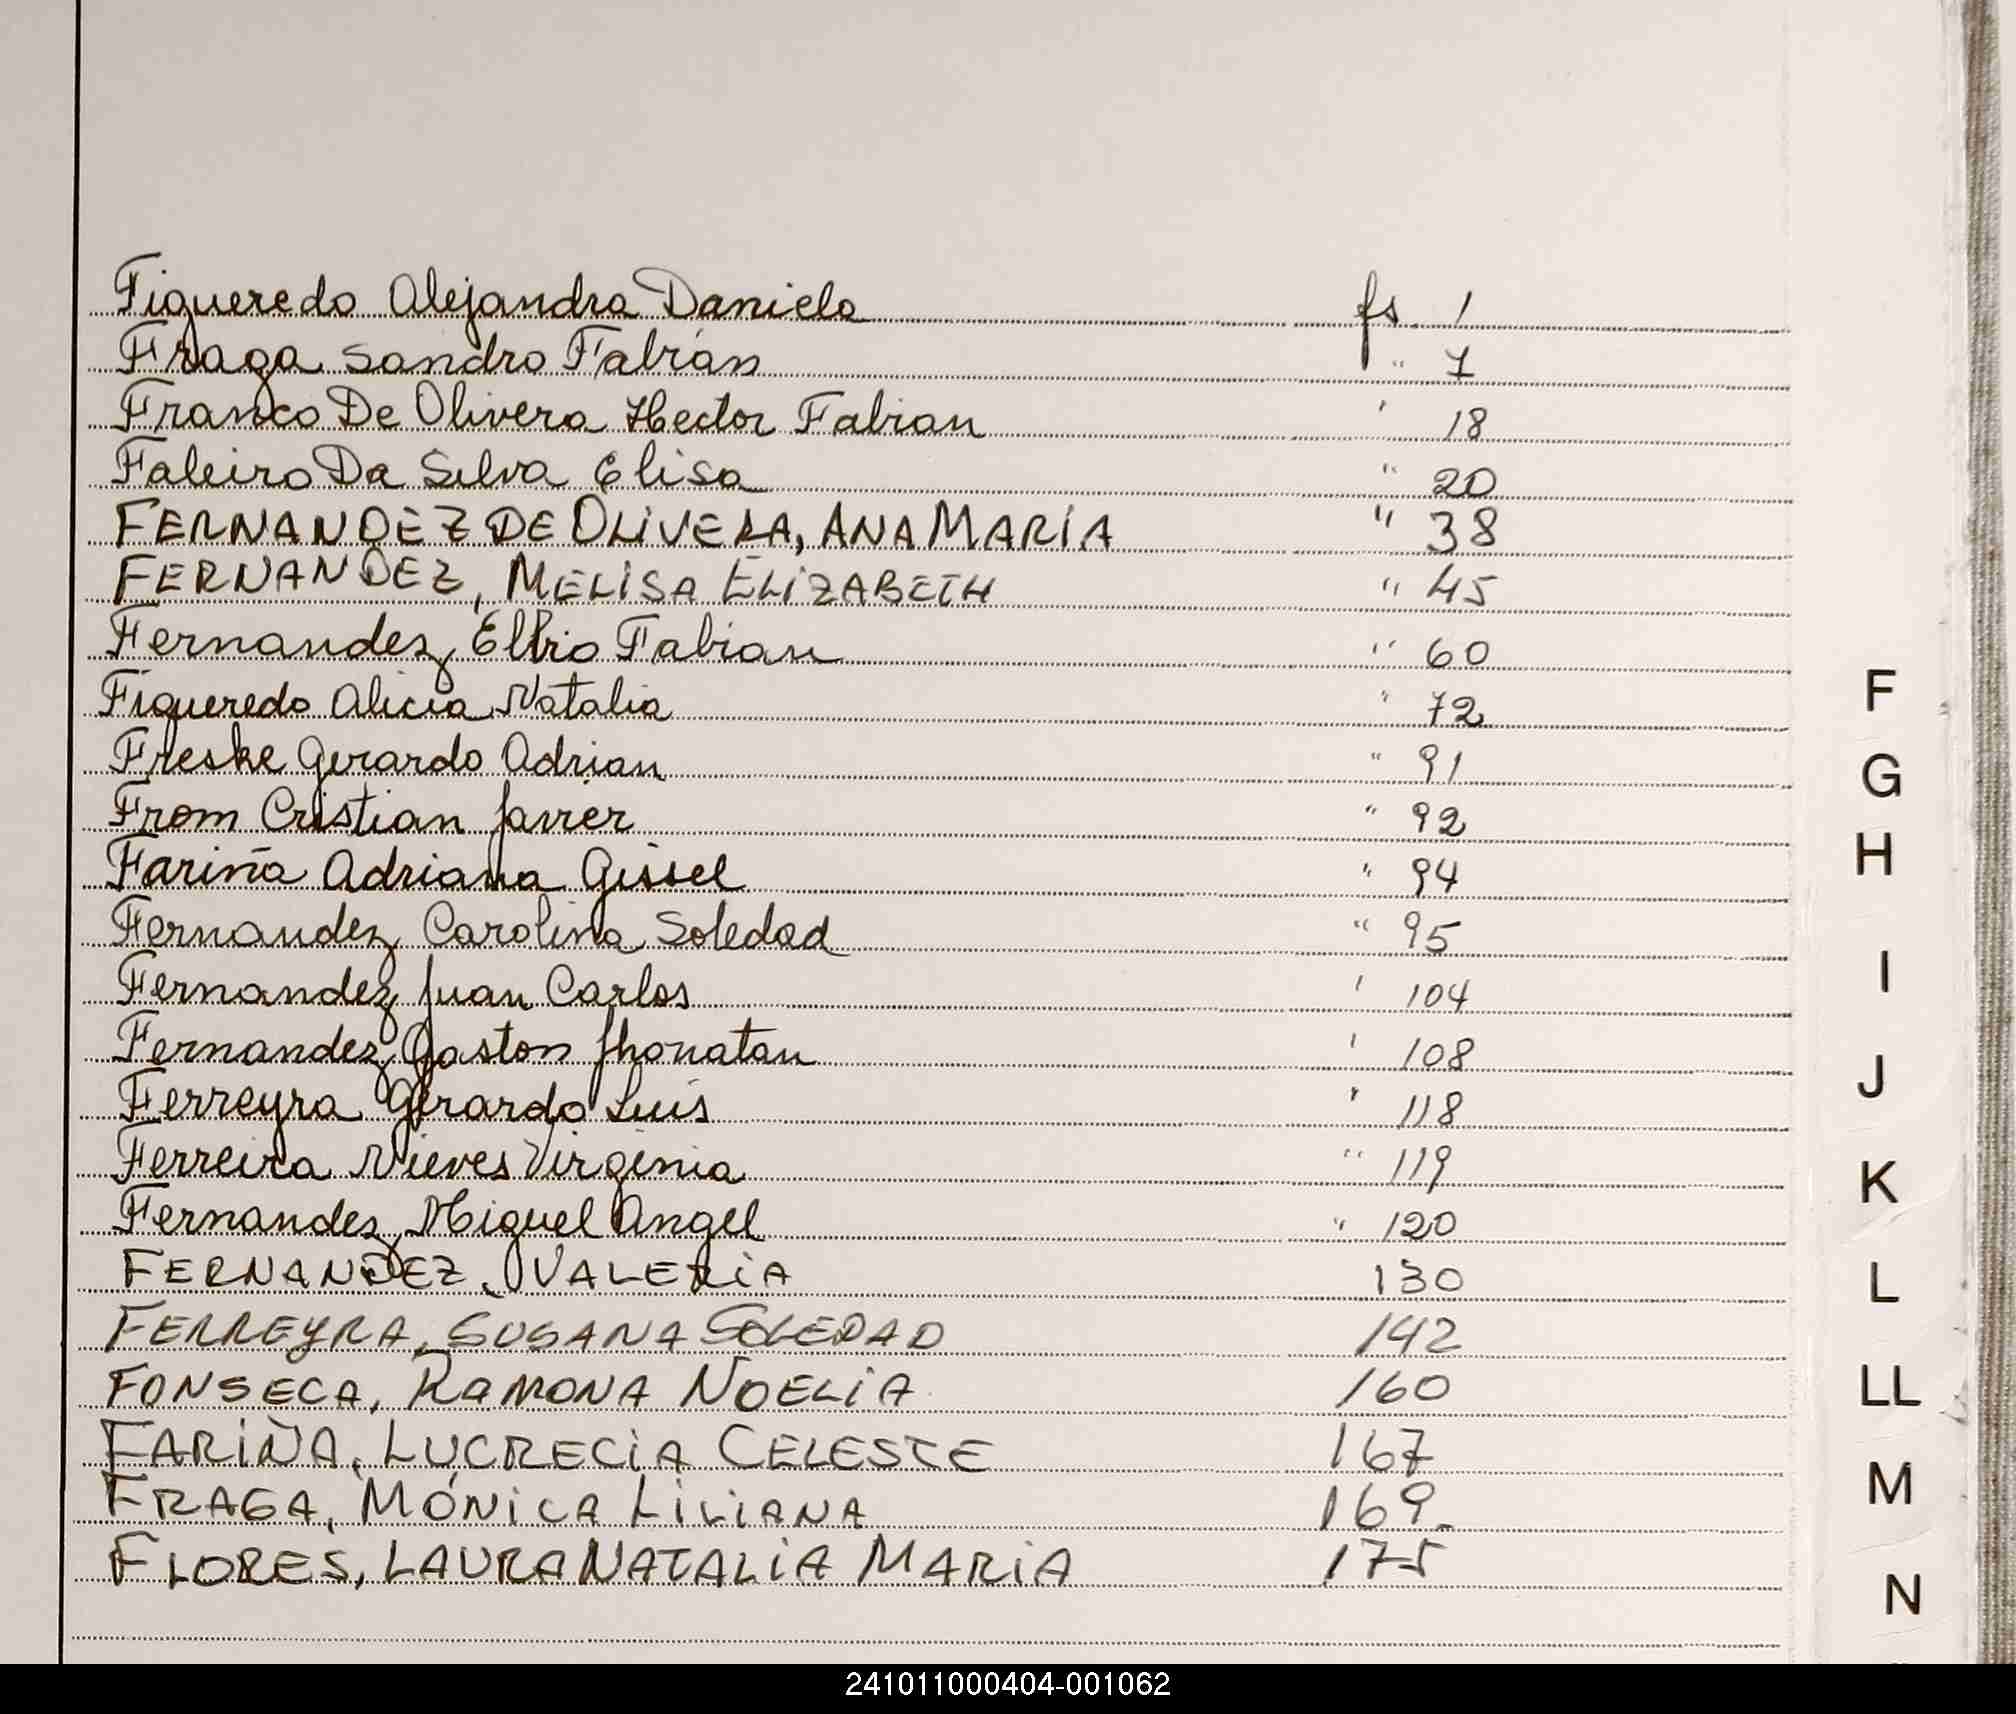 Figueredo Alejandra Daniela fs. 1
Fraga Sandro Fabián " 7
Franco De Olivera Hector Fabian ' 18
Faleiro Da Silva Elisa " 20
FERNANDEZ DE OLIVERA, ANA MARÍA " 38
FERNANDEZ, MELISA ELIZABETH " 45
Fernandez Elbio Fabian " 60
Figueredo Alicia Natalia " 72
Freske Gerardo Adrian " 91
From Cristian Javier " 92
Fariña Adriana Gissel " 94
Fernandez Carolina Soledad " 95
Fernandez Juan Carlos ' 104
Fernandez Gaston Jhonatan ' 108
Ferreyra Gerardo Luis " 118
Ferreira Nieves Virginia " 119
Fernandez Miguel Angel " 120
FERNANDEZ, VALERIA 130
FERREYRA, SUSANA SOLEDAD 142
FONSECA, RAMONA NOELIA 160
FARIÑA, LUCRECIA CELESTE 167
FRAGA, MÓNICA LILIANA 169
FLORES, LAURA NATALIA MARIA 175
F
G
H
I
J
K
L
LL
M
N
241011000404-001062